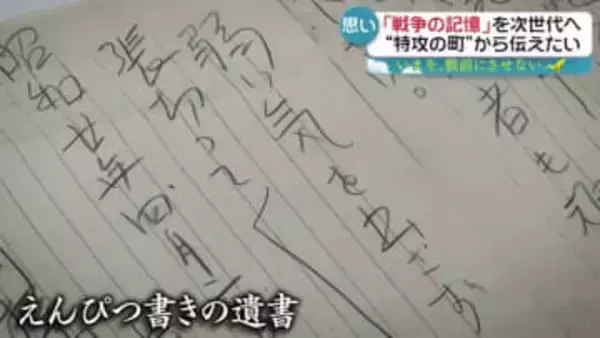 思い
「戦争の記憶」を次世代へ
“特攻の町”から伝えたい
いまを、戦前にさせない
者も
弱い気を出さず
張切って〱
昭和廿年四月
えんぴつ書きの遺書